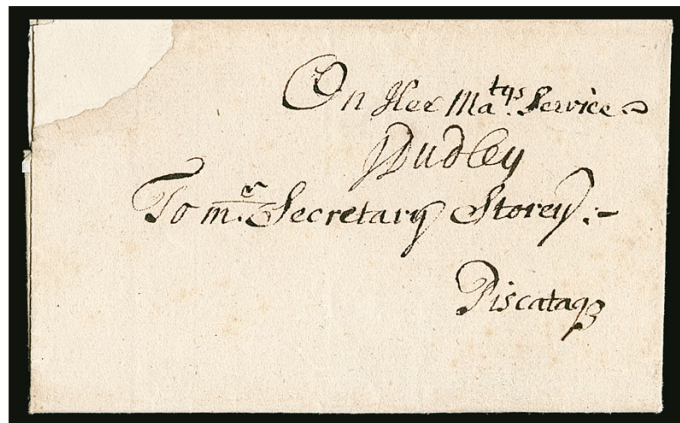 On Her Ma.tys Service
JDudley
To mr. Secretary Storey:-
Piscataq